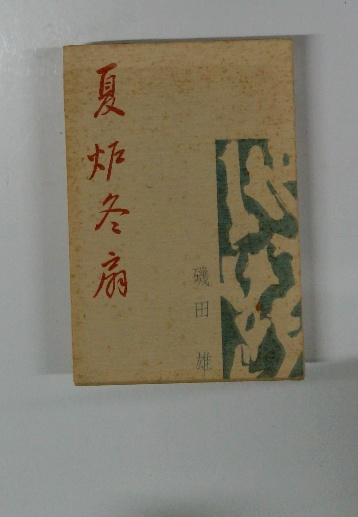 夏炉冬扇
磯田 雄